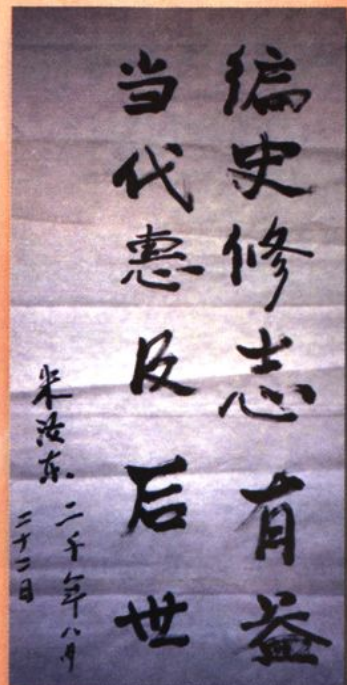 编史修志有益
当代惠及后世
米汝东 二千年八月
二十一日